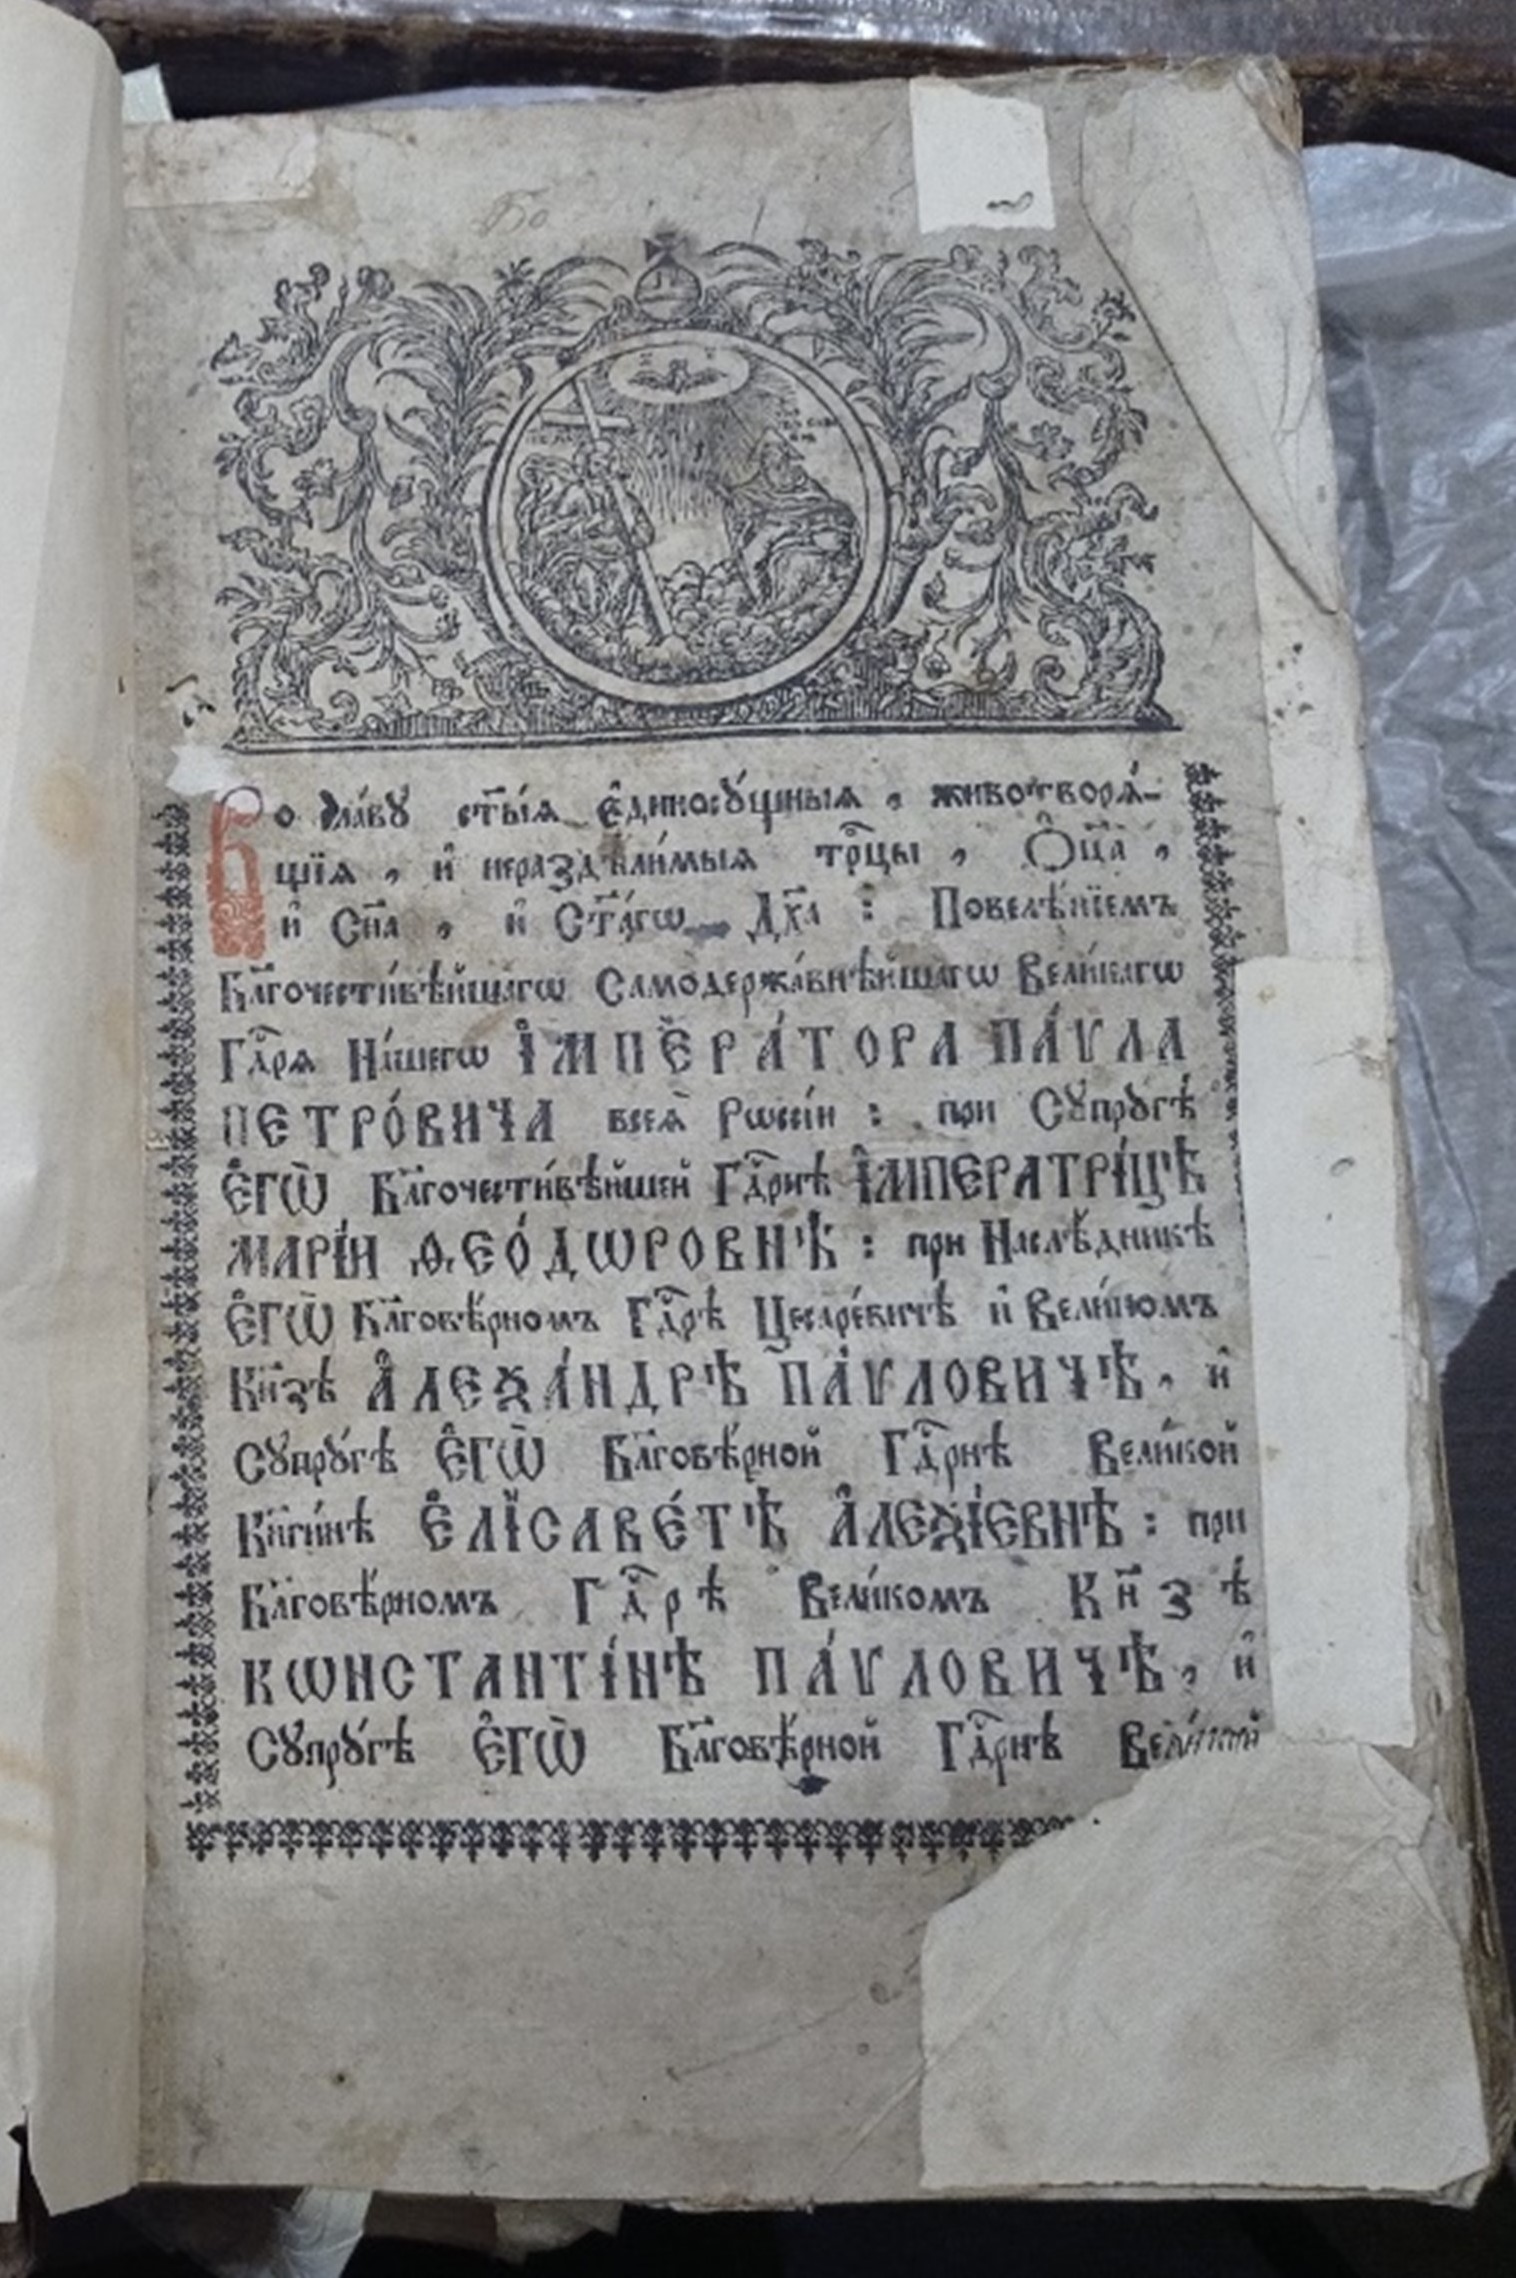 Бо
Во сла́вꙋ ст҃ы́ѧ є҆диносꙋ́щныѧ , животворѧ́-
щїѧ , и҆ нераздѣли́мыѧ трⷪ҇цы , Ѻ҆ц҃а̀ ,
и҆ Сн҃а , и҆ Ст҃а́гѡ Дх҃а : Повелѣ́нїемъ
Бл҃гочести́вѣйшагѡ Самодержа́внѣйшагѡ Вели́кагѡ
Гдⷭ҇рѧ На́шегѡ І҆МПЕРА́ТОРА ПА́ѴЛА
ПЕТРО́ВИЧА всеѧ̀ Рѡссі́и : при Сꙋпрꙋ́гѣ
Є҆ГѠ̀ Бл҃гочести́вѣйшей Гдⷭ҇рнѣ І҆МПЕРАТРІ́ЦѢ
МАРІ́И Ѳ҆ЕО́ДѠРОВНѢ : при Наслѣ́дникѣ
Є҆ГѠ̀ Бл҃говѣ́рномъ Гдⷭ҇рѣ Цесаре́вичѣ и҆ Вели́комъ
Кн҃зѣ А҆ЛЕѮА́НДРѢ ПА́ѴЛОВИЧѢ , и҆
Сꙋпрꙋ́гѣ Є҆ГѠ̀ Бл҃говѣ́рной Гдⷭ҇рнѣ Вели́кой
Кн҃ги́нѣ Є҆ЛІСАВЕ́ТѢ А҆ЛЕѮІ́ЕВНѢ : при
Бл҃говѣ́рномъ Гдⷭ҇рѣ Вели́комъ Кн҃зѣ
КѠНСТАНТІ́НѢ ПА́ѴЛОВИЧѢ , и҆
Сꙋпрꙋ́гѣ Є҆ГѠ̀ Бл҃говѣ́рной Гдⷭ҇рнѣ Вели́кой